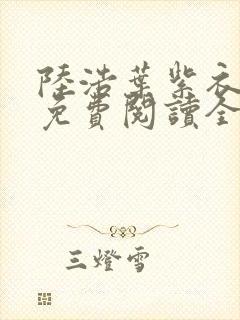 陸浩葉紫衣
免費閱讀全
三燈雪